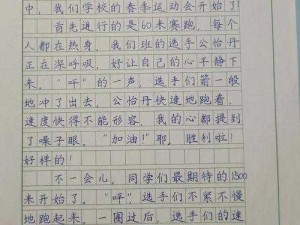 中，我们学校的春季运动会开始了！
首先进行的是60米赛跑，每个
人都在热身，我们班的选手公怡丹
正在深呼吸，好让自己的心平静下
来。"呯"的一声，选手们箭一般
地冲了出去，公怡丹快速地跑着，
速度快得不能形容，我的心都提到
了嗓子眼。"加油！"耶，胜利啦！
好样的！
不一会儿，同学们最期待的1500
米开始了。"呯"，选手们不紧不慢
地跑起来，一圈过后，选手们的速